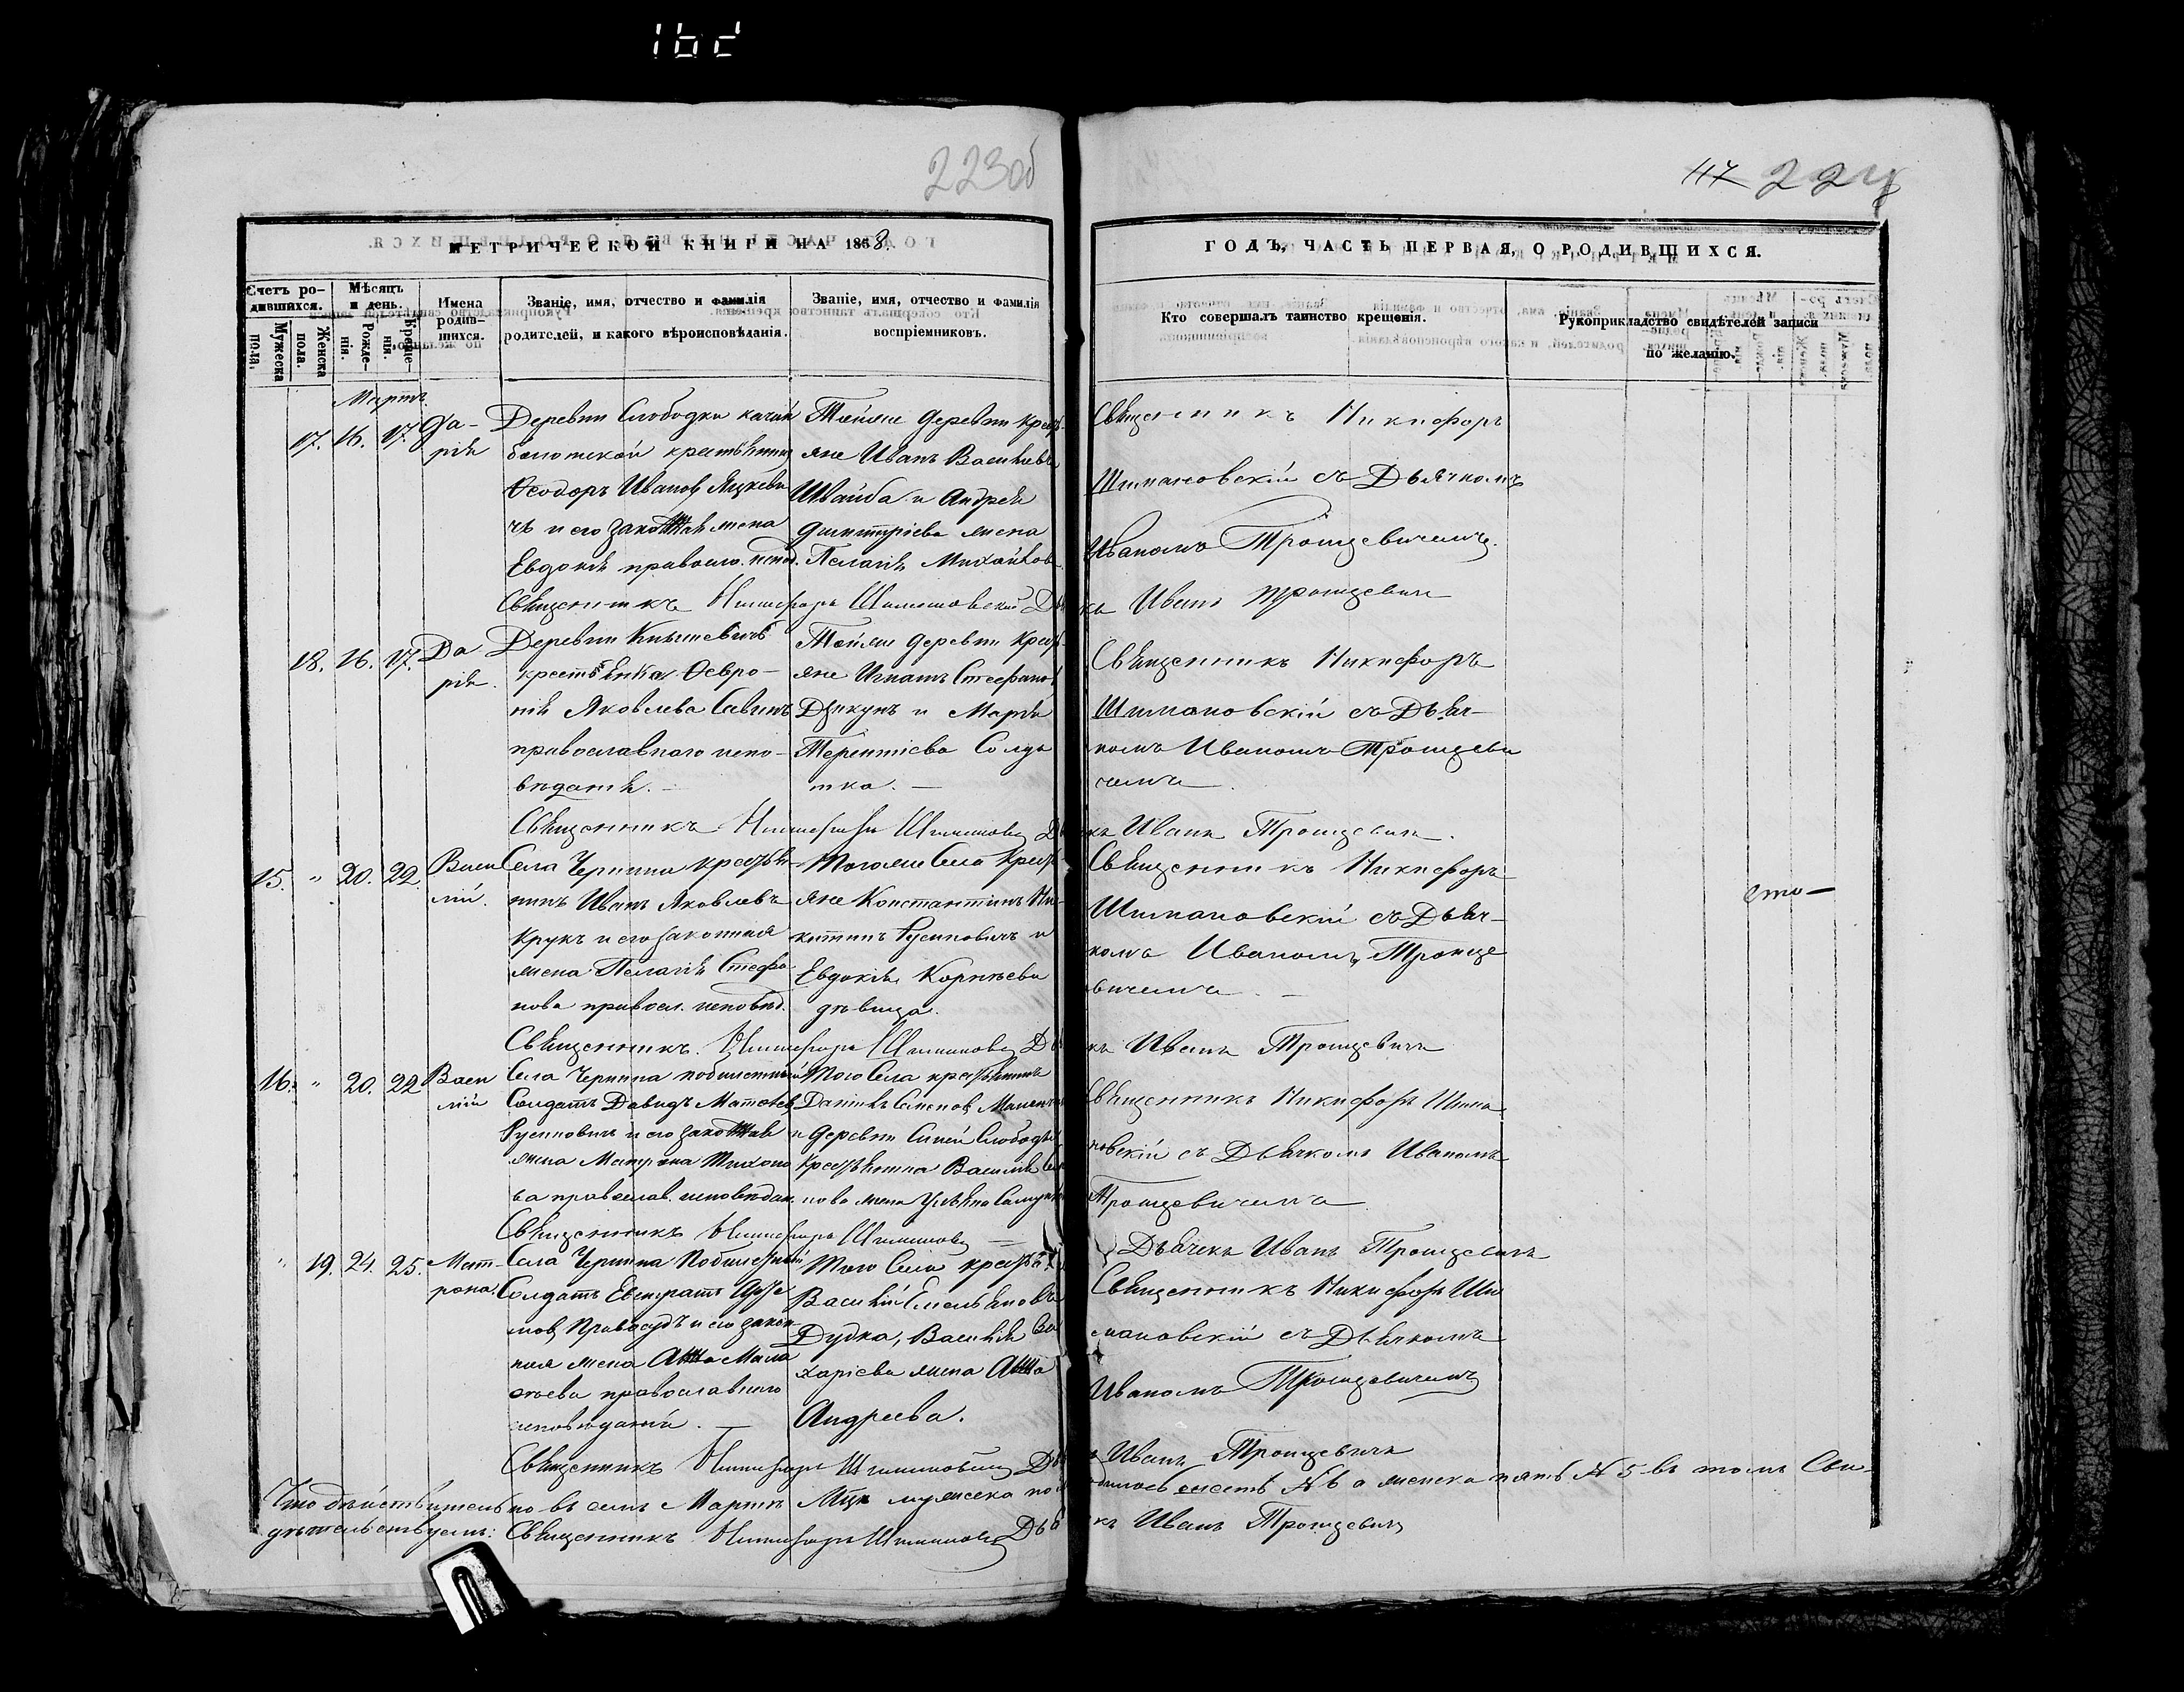 223об
117 224
МЕТРИЧЕСКОЙ КНИГИ НА 1868.
ГОДЪ, ЧАСТЬ ПЕРВАЯ, О РОДИВШИХСЯ.
Счетъ родившихся.
Мужеска пола.
Женска пола.
Мѣсяцъ и день.
Рожденія.
Крещенія.
Имена родившихся.
Званіе, имя, отчество и фамилія
родителей, и какого вѣроисповѣданія.
Званіе, имя, отчество и фамилія
воспріемниковъ.
Кто совершалъ таинство крещенія.
Рукоприкладство свидѣтелей записи
по желанію.
Мартъ
17. 16. 17. Да-
рія
Деревни Слободки
крестьянинъ
Ѳеодоръ Ивановъ Яцкеви
чъ и его законная жена
Евдокія православ. испов.
Тойже деревни крест-
яне Иванъ Васильевъ
Швайба и Андрея
Димитріева жена
Пелагія Михайлова
Священникъ Никифоръ
Шимановскій съ Дьячкомъ
Иваномъ Троицевичемъ.
Священникъ Никифоръ Шимановскій Дьячекъ Иванъ Троицевичъ
18. 16. 17. Да
рія.
Деревни
крестьянка Ѳевро-
нія Яковлева Савичъ
православнаго испо-
вѣданія.
Тойже деревни крест-
яне Игнатъ Стефановъ
Дзикунъ и Марія
Терентіева Солда
тка.
Священникъ Никифоръ
Шимановскій съ Дьяч-
комъ Иваномъ Троицеви
чемъ
Священникъ Никифоръ Шимановскій Дьячекъ Иванъ Троицевичъ.
15. " 20. 22. Васи
лій.
Села Чернина крестья-
нинъ Иванъ Яковлевъ
Крукъ и его законная
жена Пелагія Стефа
нова правосл. исповѣд.
Тогоже Села крест-
яне Константинъ Ни-
китинъ Русиновичъ и
Евдокія Корнѣева
дѣвица.
Священникъ Никифоръ
Шимановскій съ Дьяч-
комъ Иваномъ Троице
вичемъ.
Священникъ Никифоръ Шимановскій Дьячекъ Иванъ Троицевичъ
16. " 20. 22 Васи
лій
Села Чернина побилетный
Солдатъ Давидъ Матѳеев
Русиновичъ и его законная
жена Матрона Тихоно
ва православ. исповѣдан.
Того Села крестьянинъ
Даніилъ Семеновъ
и деревни Синей Слободки
Крестьянина Василія
нова жена Ульяна
Священникъ Никифоръ Шима
новскій съ Дьячкомъ Иваномъ
Троицевичемъ
Священникъ Никифоръ Шимановскій
Дьячекъ Иванъ Троицевичъ
" 19. 24. 25. Мат-
рона.
Села Чернина Побилетный
Солдатъ Евстратъ
мовъ Правосудъ и его закон
ная жена Анна Мала
ѳѣева православнаго
исповѣданія.
Того Села крестья
Василій Емельяновъ
Дудка, Василія За
харіева жена Анна
Андреева.
Священникъ Никифоръ Ши
мановскій съ Дьячкомъ
Иваномъ Троицевичемъ
Священникъ Никифоръ Шимановскій Дьячекъ Иванъ Троицевичъ
Что дѣйствительно въ семъ Мартѣ Мцѣ мужеска пола родилось шесть № 6 а женска пять № 5 въ томъ Сви-
дѣтельствуемъ: Священникъ Никифоръ Шимановскій Дьячекъ Иванъ Троицевичъ